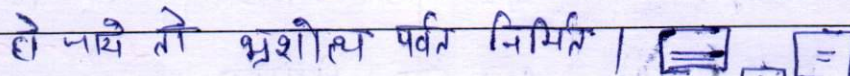 हो जाये तो भ्रंशोत्थ पर्वत निर्मित।